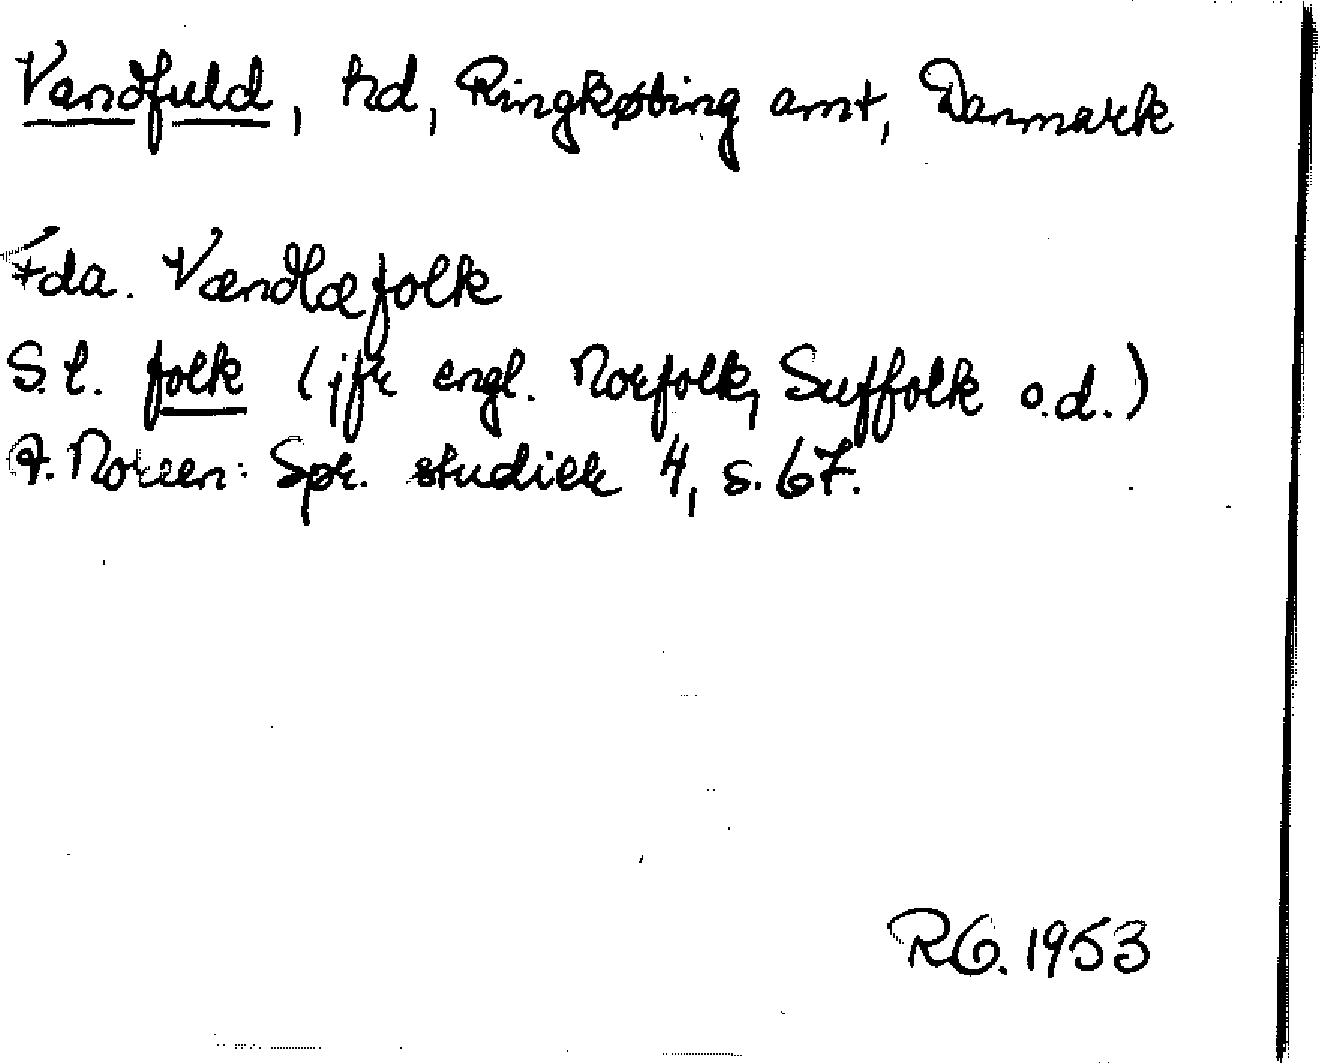 Vandfuld, hd, Ringkøbing amt, Danmark
Fda. Vændlæfolk
S.l. folk (jfr engl. Norfolk, Suffolk o.d.)
A. Noreen: Spr. studier 4, s. 67.
RG. 1953